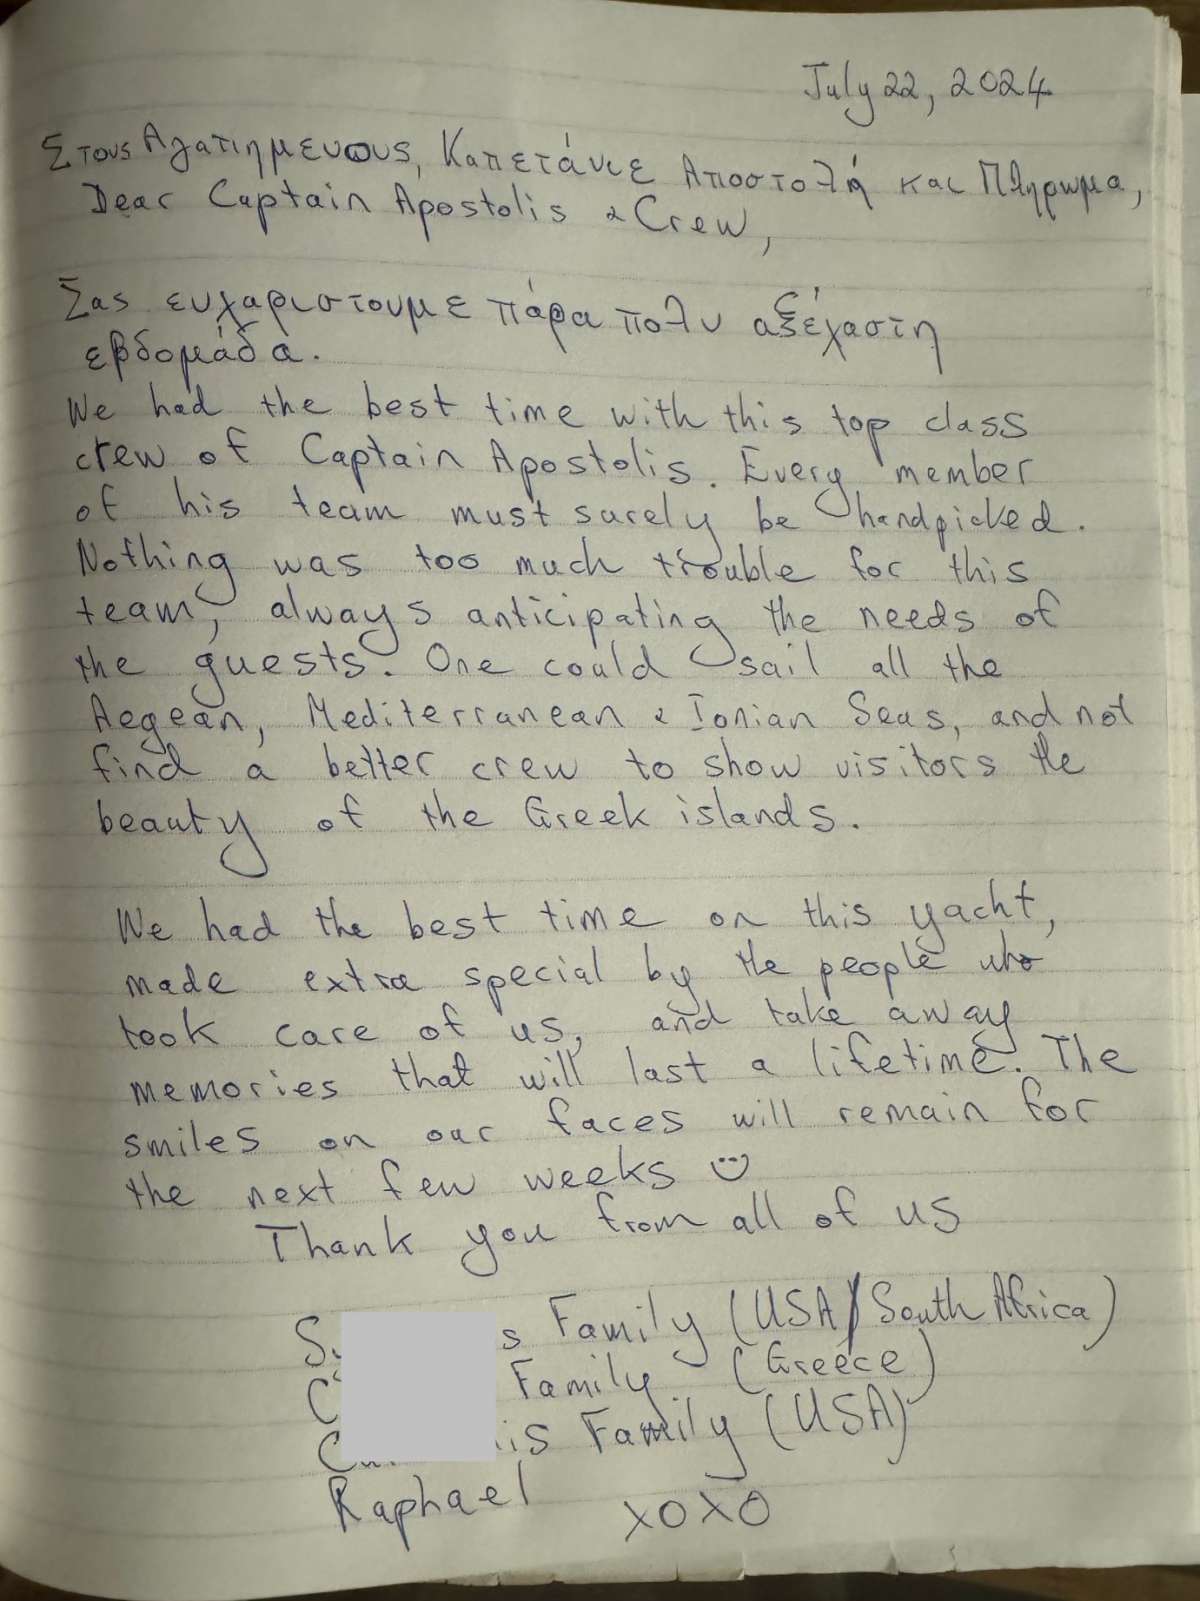 July 22, 2024
Στους Αγαπημενους, Καπετάνιε Αποστολή και Πλήρωμα,
Dear Captain Apostolis & Crew,
Σας ευχαριστουμε πάρα πολυ αξέχαστη
εβδομάδα.
We had the best time with this top class
crew of Captain Apostolis. Every member
of his team must surely be handpicked.
Nothing was too much trouble for this
team, always anticipating the needs of
the guests. One could sail all the
Aegean, Mediterranean & Ionian Seas, and not
find a better crew to show visitors the
beauty of the Greek islands.
We had the best time on this yacht,
made extra special by the people who
took care of us, and take away
memories that will last a lifetime. The
smiles on our faces will remain for
the next few weeks
Thank you from all of us
Family (USA/South Africa)
Family (Greece)
Family (USA)
Raphael
XOXO